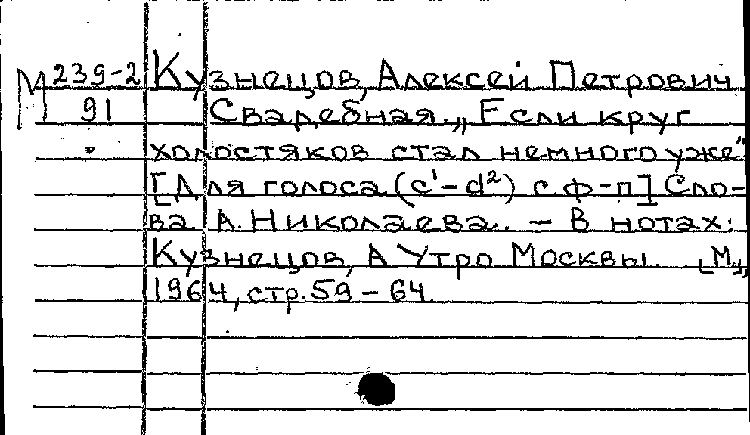 М 239-2 Кузнецов, Алексей Петрович
91 Свадебная. „Если круг
холостяков стал немного уже"
[Для голоса (c¹-d²) с ф-п] Сло-
ва А. Николаева. - В нотах:
Кузнецов, А Утро Москвы. [М.,
1964, стр. 59 - 64.